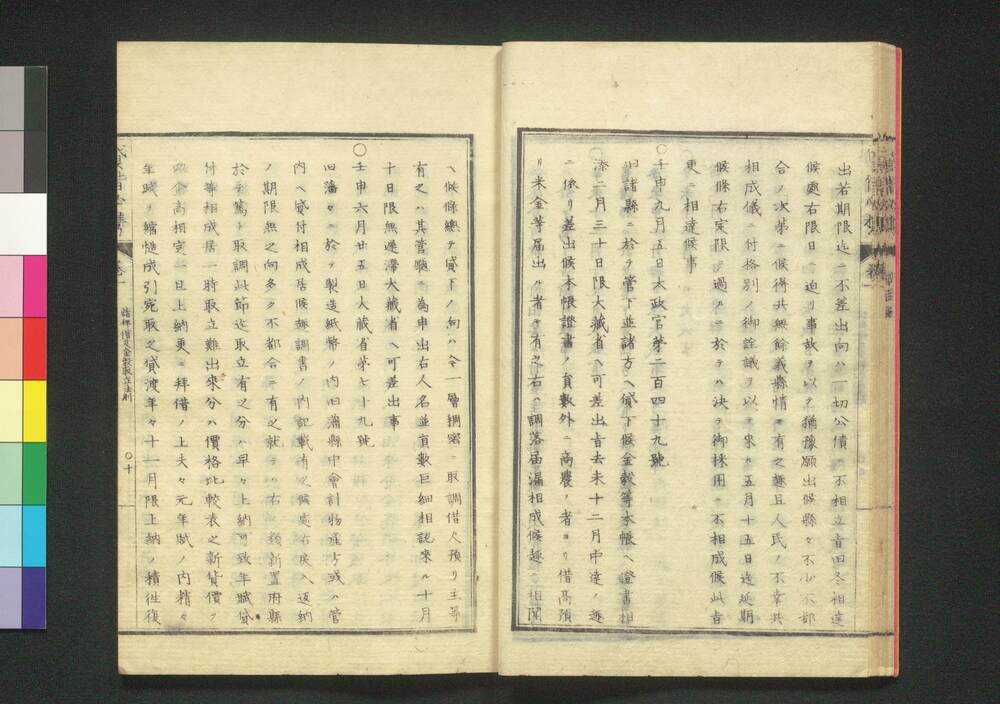 出若期限迄ニ不差出向ハ一切公債ニ不相立旨旧冬相達
候處右限日ニ迫リ事故ヲ以テ猶豫願出候縣々不少不都
合ノ次第ニ候得共無餘義縣情モ有之趣且人民ノ不幸共
相成儀ニ付格別ノ御詮議ヲ以テ來ル五月十五日迄延期
候條右定限ヲ過クルニ於テハ決テ御採用ニ不相成候此旨
更ニ相達候事
○壬申九月五日太政官第二百四十九號
旧諸縣ニ於テ管下並諸方ヘ貸下候金穀等本帳ヘ證書相
添二月三十日限大藏省ヘ可差出旨去未十二月中達ノ趣
ニ依リ差出候本帳證書ノ員數外ニ高農ノ者ヨリ借髙預
リ米金等届出ル者モ有之右ハ調落届漏相成候趣ニ相聞
ヘ候條總テ貸下ノ向ハ今一層綢密ニ取調借人預リ主等
有之ハ其管廳ニ為申出右人名並員數巨細相認來ル十月
十日限無遲滞大藏省ヘ可差出事
○壬申六月廿五日大藏省第七十九號
旧藩々ニ於テ製造紙幣ノ内旧藩縣中會計物産方或ハ管
内ヘ貸付相成居候趣調書ノ内記載有之候處右戻入返納
ノ期限無之向多ク不都合ニ有之就テハ右ノ類新置府縣
於テ篤ト取調此節迄取立有之分ハ早々上納可致年賦貸
付等相成居一時取立難出來分ハ價格比較表之新貨價ヲ
以金高相定一旦上納更ニ拜借ノ上夫々元年賦ノ内精々
年賦ヲ縮?成引宛取之貸渡年々十一月限上納ノ積往復
諸拝借及金穀取立法則
○十